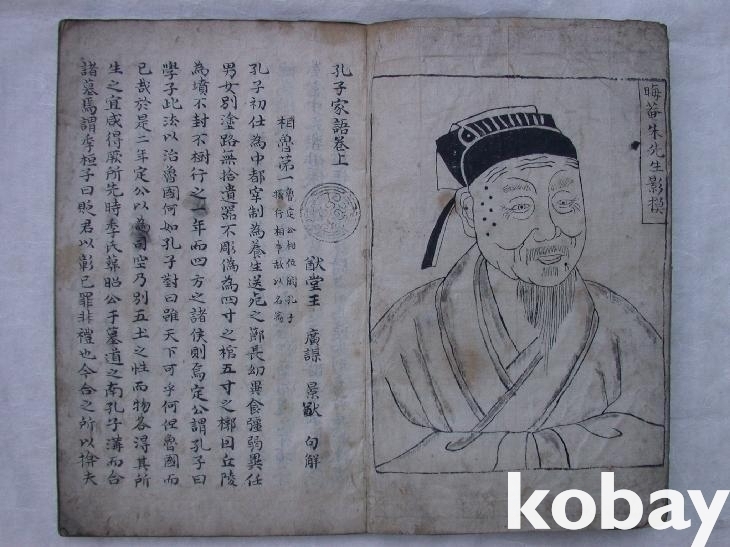 晦菴朱先生影模
孔子家語卷上
猷堂王 廣謀 景猷 句解
相魯第一
孔子初仕為中都宰制為養生送死之節長幼異食彊弱異任
男女別塗路無拾遺器不彫僞為四寸之棺五寸之槨因丘陵
為墳不封不樹行之一年而四方之諸侯則焉定公謂孔子曰
學子此法以治魯國何如孔子對曰雖天下可乎何但魯國而
已哉於是二年定公以為司空乃別五土之性而物各得其所
生之宜咸得厥所先時季氏葬昭公于墓道之南孔子溝而合
諸墓焉謂季桓子曰貶君以彰已罪非禮也今合之所以揜夫
kobay